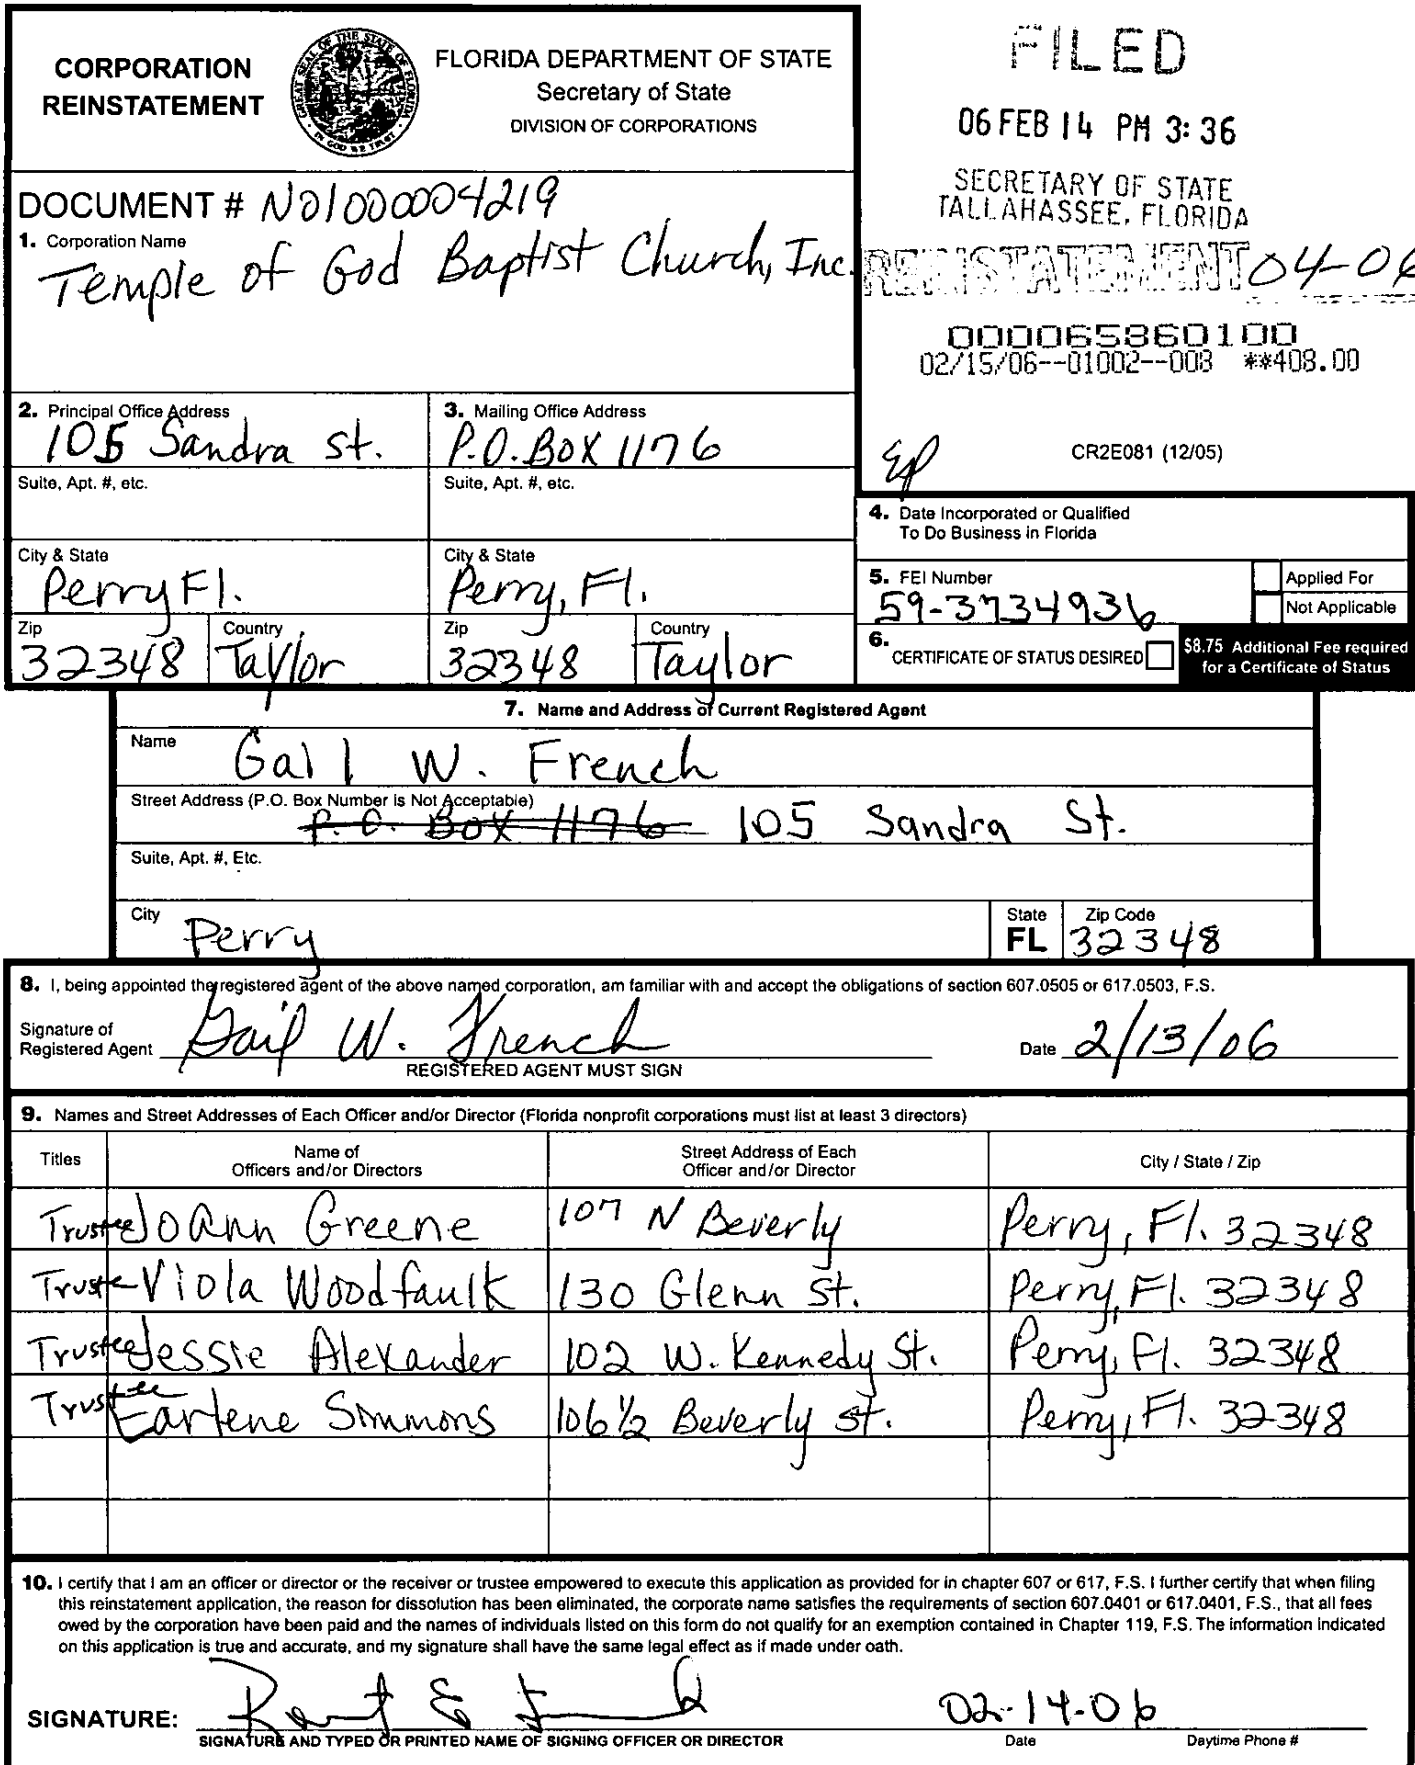 CORPORATION
REINSTATEMENT
GREAT SEAL OF THE STATE OF FLORIDA
IN GOD WE TRUST
FLORIDA DEPARTMENT OF STATE
Secretary of State
DIVISION OF CORPORATIONS
FILED
06 FEB 14 PM 3:36
SECRETARY OF STATE
TALLAHASSEE, FLORIDA
REINSTATEMENT 04-06
000065860100
02/15/06--01002--008 **408.00
CR2E081 (12/05)
DOCUMENT # N01000004219
1. Corporation Name
Temple of God Baptist Church, Inc.
2. Principal Office Address
105 Sandra St.
3. Mailing Office Address
P.O. Box 1176
Suite, Apt. #, etc.
Suite, Apt. #, etc.
City & State
Perry Fl.
City & State
Perry, Fl.
Zip
32348
Country
Taylor
Zip
32348
Country
Taylor
4. Date Incorporated or Qualified
To Do Business in Florida
5. FEI Number
59-3734936
Applied For
Not Applicable
6. CERTIFICATE OF STATUS DESIRED
$8.75 Additional Fee required
for a Certificate of Status
7. Name and Address of Current Registered Agent
Name
Gail W. French
Street Address (P.O. Box Number is Not Acceptable)
P.O. Box 1176 105 Sandra St.
Suite, Apt. #, Etc.
City
Perry
State
FL
Zip Code
32348
8. I, being appointed the registered agent of the above named corporation, am familiar with and accept the obligations of section 607.0505 or 617.0503, F.S.
Signature of
Registered Agent Gail W. French
Date 2/13/06
REGISTERED AGENT MUST SIGN
9. Names and Street Addresses of Each Officer and/or Director (Florida nonprofit corporations must list at least 3 directors)
Titles
Name of
Officers and/or Directors
Street Address of Each
Officer and/or Director
City / State / Zip
Trustee JoAnn Greene 107 N Beverly Perry, Fl. 32348
Truste Viola Woodfaulk 130 Glenn St. Perry, Fl. 32348
Trustee Jessie Alexander 102 W. Kennedy St. Perry, Fl. 32348
Trustee Earlene Simmons 106½ Beverly St. Perry, Fl. 32348
10. I certify that I am an officer or director or the receiver or trustee empowered to execute this application as provided for in chapter 607 or 617, F.S. I further certify that when filing
this reinstatement application, the reason for dissolution has been eliminated, the corporate name satisfies the requirements of section 607.0401 or 617.0401, F.S., that all fees
owed by the corporation have been paid and the names of individuals listed on this form do not qualify for an exemption contained in Chapter 119, F.S. The information indicated
on this application is true and accurate, and my signature shall have the same legal effect as if made under oath.
SIGNATURE:
02-14-06
SIGNATURE AND TYPED OR PRINTED NAME OF SIGNING OFFICER OR DIRECTOR
Date
Daytime Phone #